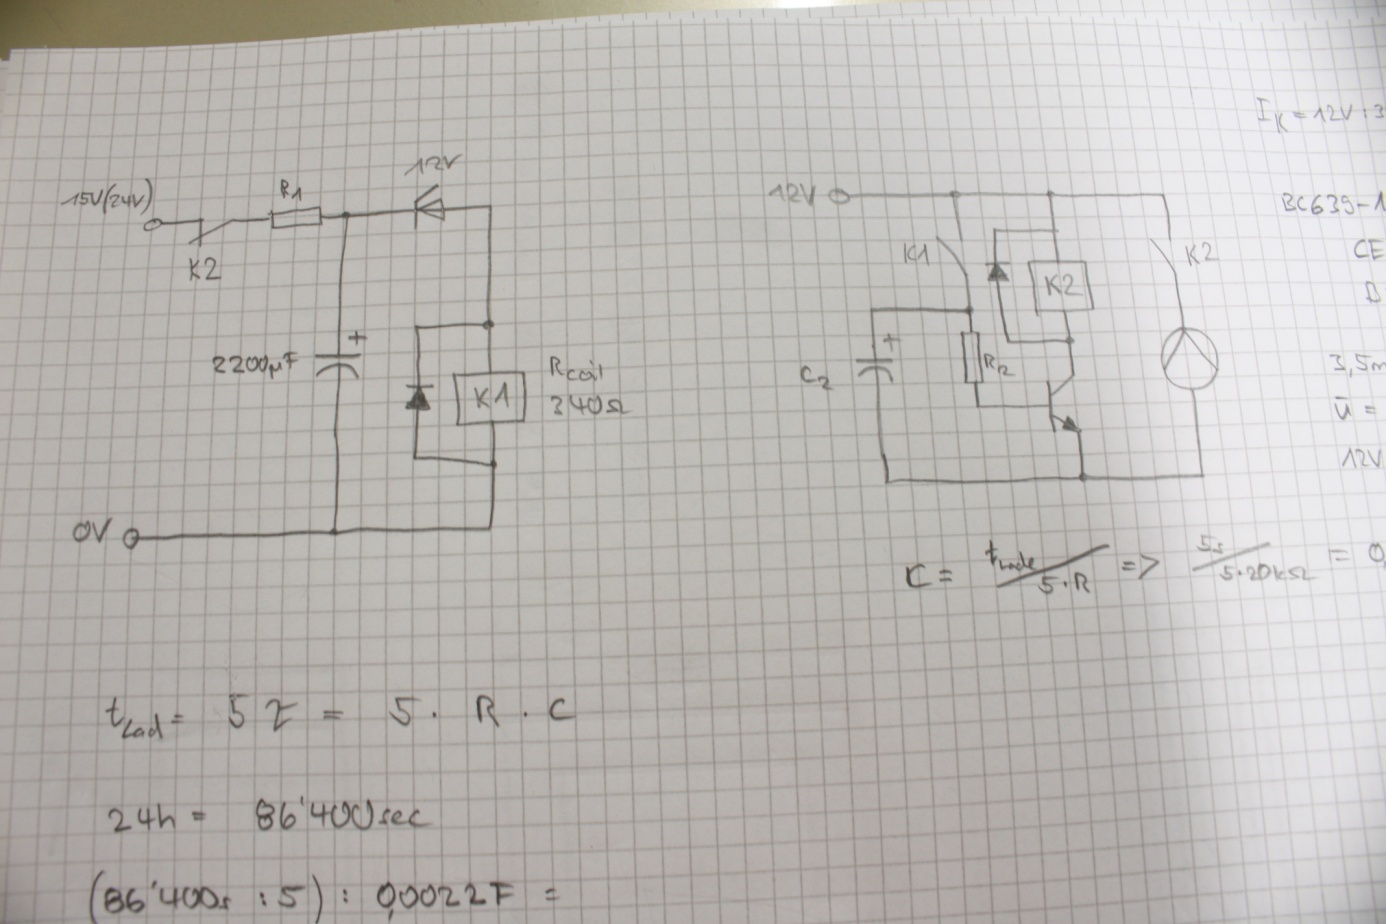 15V(24V)
R1
12V
K2
2200µF
+
K1
Rcoil
340Ω
0V
12V
K1
K2
K2
C2
+
R2
IK = 12V : 3
BC639-1
CE
3,5m
ū =
12V
C = 5·R => 5s / 5·20kΩ = 0,
tLad = 5 τ = 5 · R · C
24h = 86'400sec
(86'400s : 5) : 0,0022F =